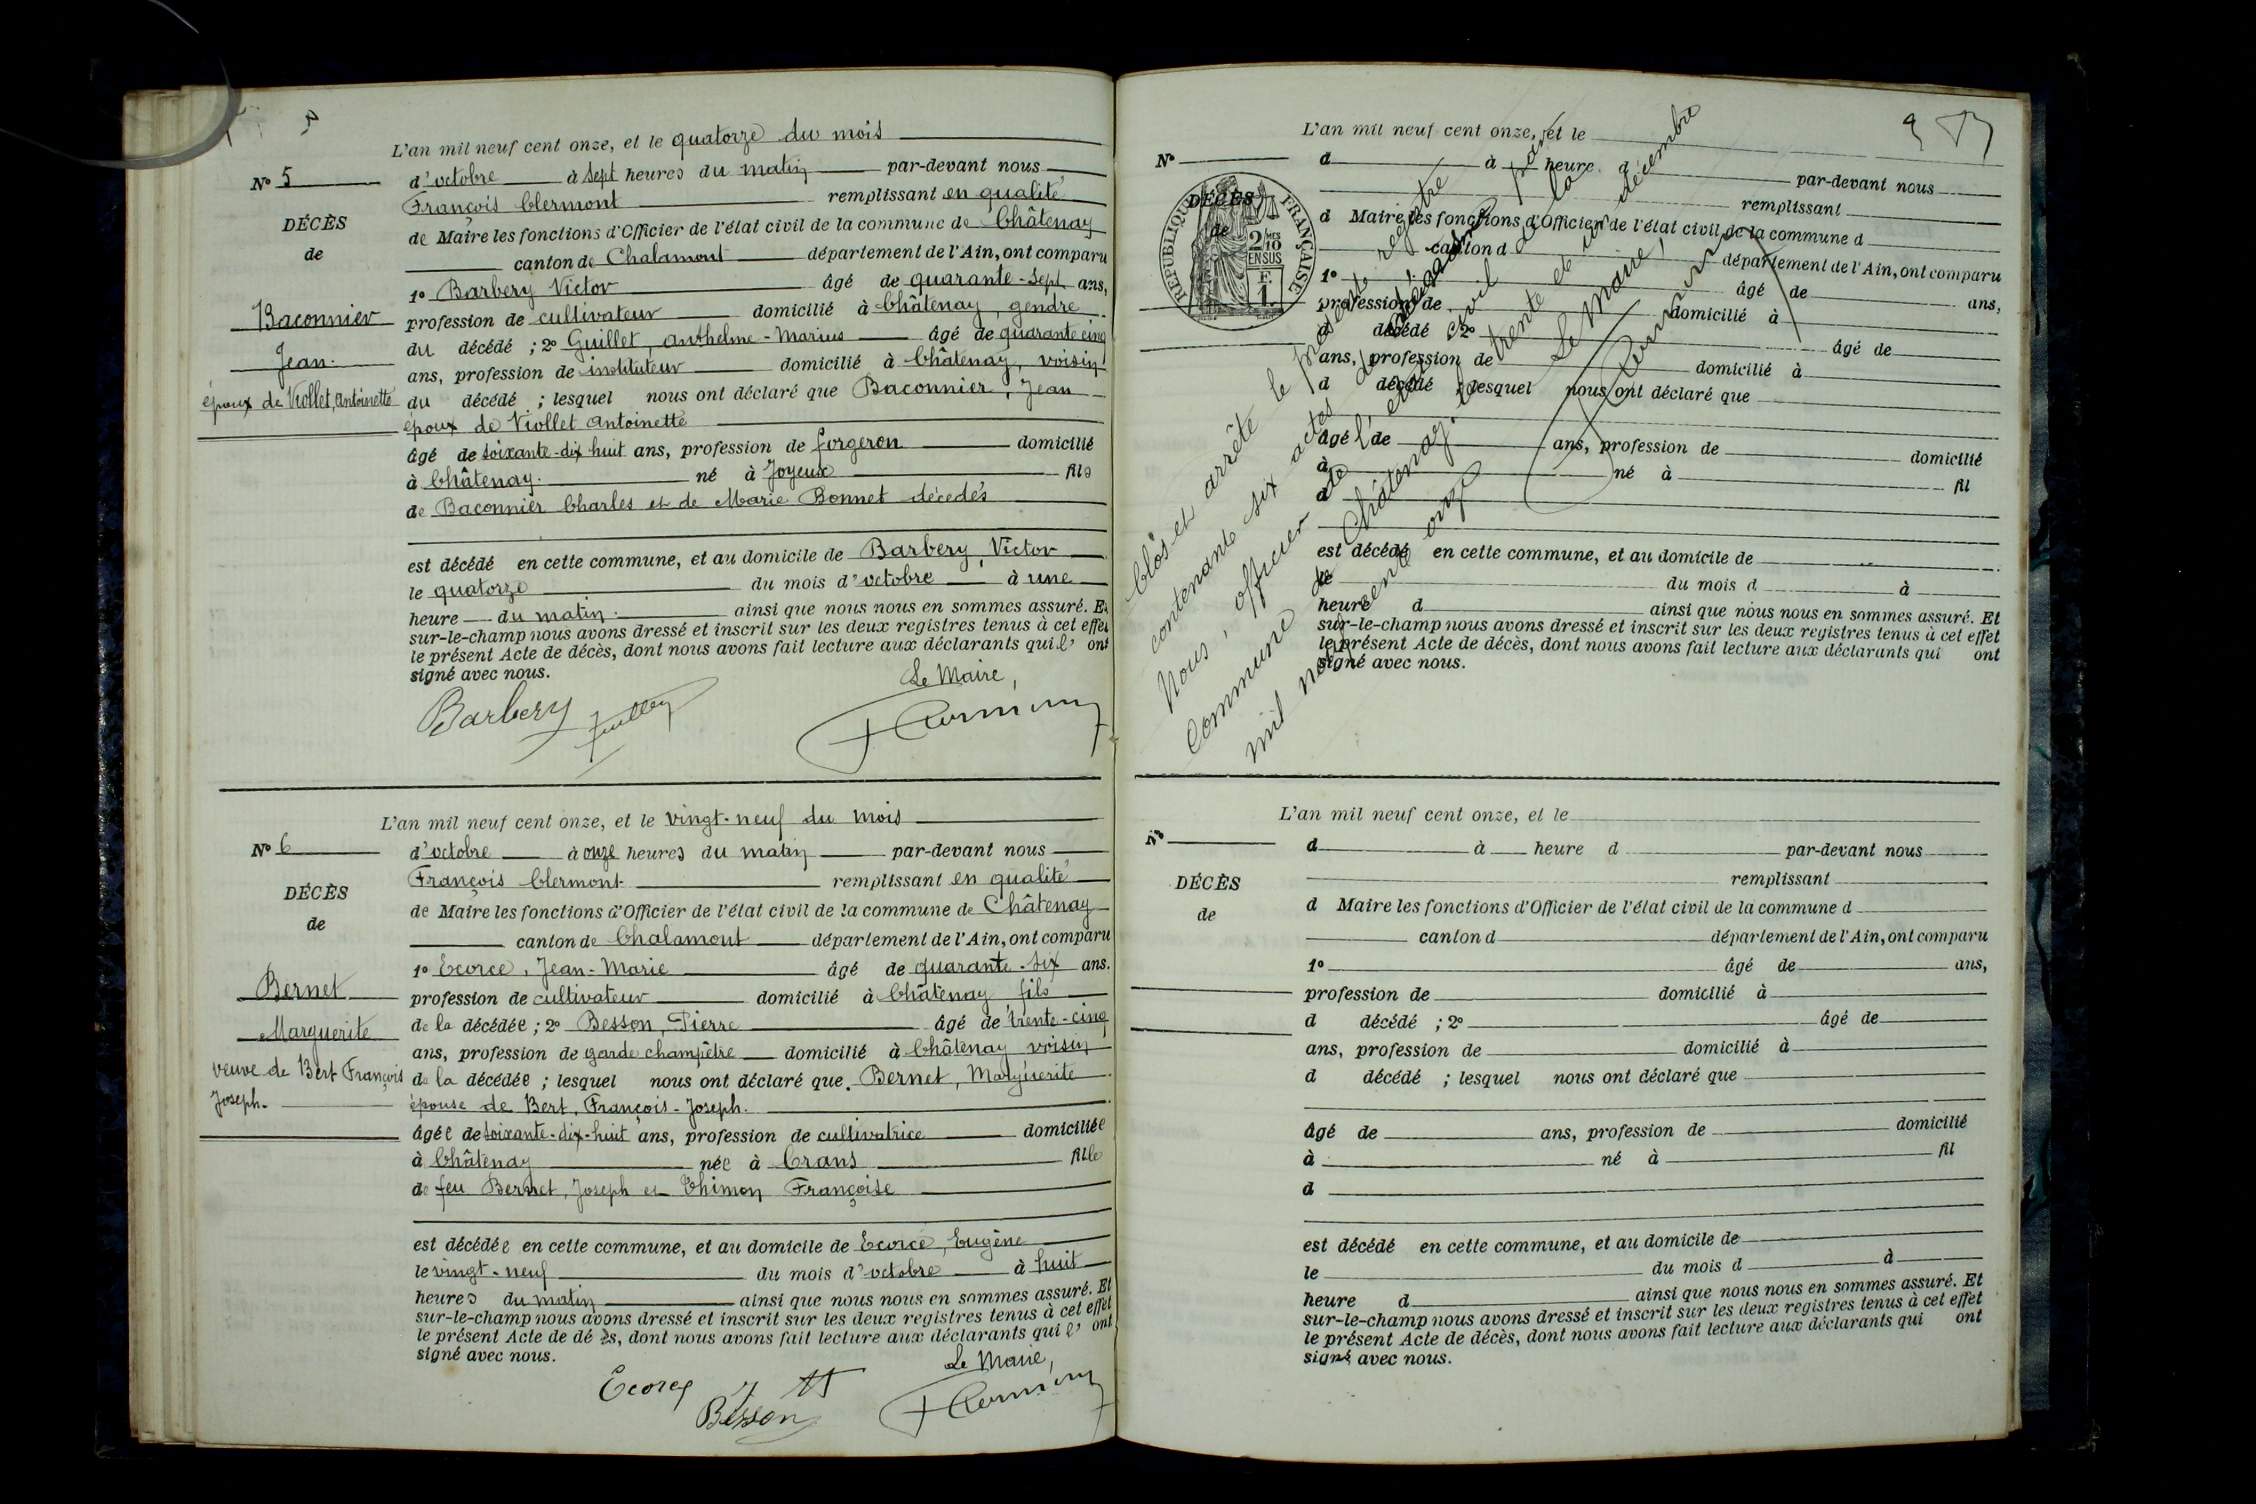 L'an mil neuf cent onze, et le quatorze du mois
N° 5
d'octobre à sept heures du matin par-devant nous
François Clermont remplissant en qualité
DÉCÈS
de Maire les fonctions d'Officier de l'état civil de la commune de Châtenay
de
canton de Chalamont département de l'Ain, ont comparu
1° Barbery Victor âgé de quarante-sept ans,
Baconnier
profession de cultivateur domicilié à Châtenay, gendre
Jean.
du décédé ; 2° Guillet, Anthelme-Marius âgé de quarante cinq
ans, profession de instituteur domicilié à Châtenay, voisin
époux de Viollet, Antoinette
du décédé ; lesquel nous ont déclaré que Baconnier, Jean
époux de Viollet Antoinette
âgé de soixante-dix huit ans, profession de forgeron domicilié
à Châtenay. né à Joyeux fils
de Baconnier Charles et de Marie Bonnet décédés
est décédé en cette commune, et au domicile de Barbery, Victor
le quatorze du mois d'octobre à une
heure du matin. ainsi que nous nous en sommes assuré. Et
sur-le-champ nous avons dressé et inscrit sur les deux registres tenus à cet effet
le présent Acte de décès, dont nous avons fait lecture aux déclarants qui l' ont
signé avec nous.
Le Maire,
Barbery Guillet FClermont
L'an mil neuf cent onze, et le vingt-neuf du mois
N° 6
d'octobre à onze heures du matin par-devant nous
François Clermont remplissant en qualité
DÉCÈS
de Maire les fonctions d'Officier de l'état civil de la commune de Châtenay
de
canton de Chalamont département de l'Ain, ont comparu
1° Ecorce, Jean-Marie âgé de quarante-six ans.
Bernet
profession de cultivateur domicilié à Châtenay fils
Marguerite
de la décédée ; 2° Besson, Pierre âgé de trente-cinq
ans, profession de garde champêtre domicilié à Châtenay voisin
veuve de Bert François
de la décédée ; lesquel nous ont déclaré que Bernet, Marguerite
Joseph.
épouse de Bert, François-Joseph.
âgée de soixante-dix-huit ans, profession de cultivatrice domiciliée
à Châtenay née à Crans fille
de feu Bernet, Joseph et Thimon Françoise
est décédée en cette commune, et au domicile de Ecorce, Eugène
le vingt-neuf du mois d'octobre à huit
heures du matin ainsi que nous nous en sommes assuré. Et
sur-le-champ nous avons dressé et inscrit sur les deux registres tenus à cet effet
le présent Acte de dé ès, dont nous avons fait lecture aux déclarants qui l' ont
signé avec nous.
Le Maire,
Ecorce
Besson FClermont
L'an mil neuf cent onze, et le
N°
d à heure d par-devant nous
remplissant
DÉCÈS
d Maire les fonctions d'Officier de l'état civil de la commune d
de
canton d département de l'Ain, ont comparu
1° âgé de ans,
profession de domicilié à
d décédé ; 2° âgé de
ans, profession de domicilié à
d décédé ; lesquel nous ont déclaré que
âgé de ans, profession de domicilié
à né à fil
d
est décédé en cette commune, et au domicile de
le du mois d à
heure d ainsi que nous nous en sommes assuré. Et
sur-le-champ nous avons dressé et inscrit sur les deux registres tenus à cet effet
le présent Acte de décès, dont nous avons fait lecture aux déclarants qui ont
signé avec nous.
RÉPUBLIQUE FRANÇAISE
2/10 MES
EN SUS
F.
1.
Clos et arrêté le présent registre
contenant six actes de décès par
Nous, officier de l'état civil de la
commune de Châtenay le trente et un décembre
mil neuf cent onze
Le Maire,
FClermont
L'an mil neuf cent onze, et le
N°
d à heure d par-devant nous
remplissant
DÉCÈS
d Maire les fonctions d'Officier de l'état civil de la commune d
de
canton d département de l'Ain, ont comparu
1° âgé de ans,
profession de domicilié à
d décédé ; 2° âgé de
ans, profession de domicilié à
d décédé ; lesquel nous ont déclaré que
âgé de ans, profession de domicilié
à né à fil
d
est décédé en cette commune, et au domicile de
le du mois d à
heure d ainsi que nous nous en sommes assuré. Et
sur-le-champ nous avons dressé et inscrit sur les deux registres tenus à cet effet
le présent Acte de décès, dont nous avons fait lecture aux déclarants qui ont
signé avec nous.